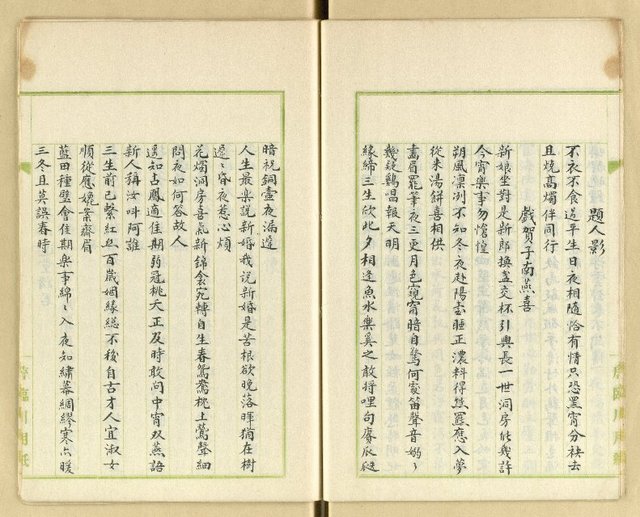 題人影
不衣不食過平生日夜相隨恰有情只恐黑宵分袂去
且燒高燭伴同行
戲賀子南燕喜
新娘坐對是新郎換盞交杯引興長一世洞房能幾許
今宵樂事勿慞惶
朔風凜冽不知冬夜赴陽臺睡正濃料得熊羆應入夢
從來湯餅喜相供
畫眉罷筆夜三更月色窺窗暗自驚何家笛聲音嫋〻
幾疑鷄唱報天明
緣締三生欣此夕相逢魚水樂眞之敢將哩句賡
暗祝銅壺夜漏遲
人生最樂説新婚我説新婚是苦根欲晚落暉猶在樹
遲〻昏夜惹心煩
花燭洞房喜氣新錦衾宛轉自生春鴛鴦枕上鶯聲細
問夜如何答故人
遥知占鳳適佳期弱冠桃夭正及時敢問中宵双燕語
新人稱汝叫阿誰
三生前已繫紅絲百歲姻緣總不移自古才人宜淑女
順從應嬎案齊眉
藍田種璧會佳期樂事綿〻入夜知繡幕綢繆寒亦暖
三冬且莫誤春時
薜臨川用紙